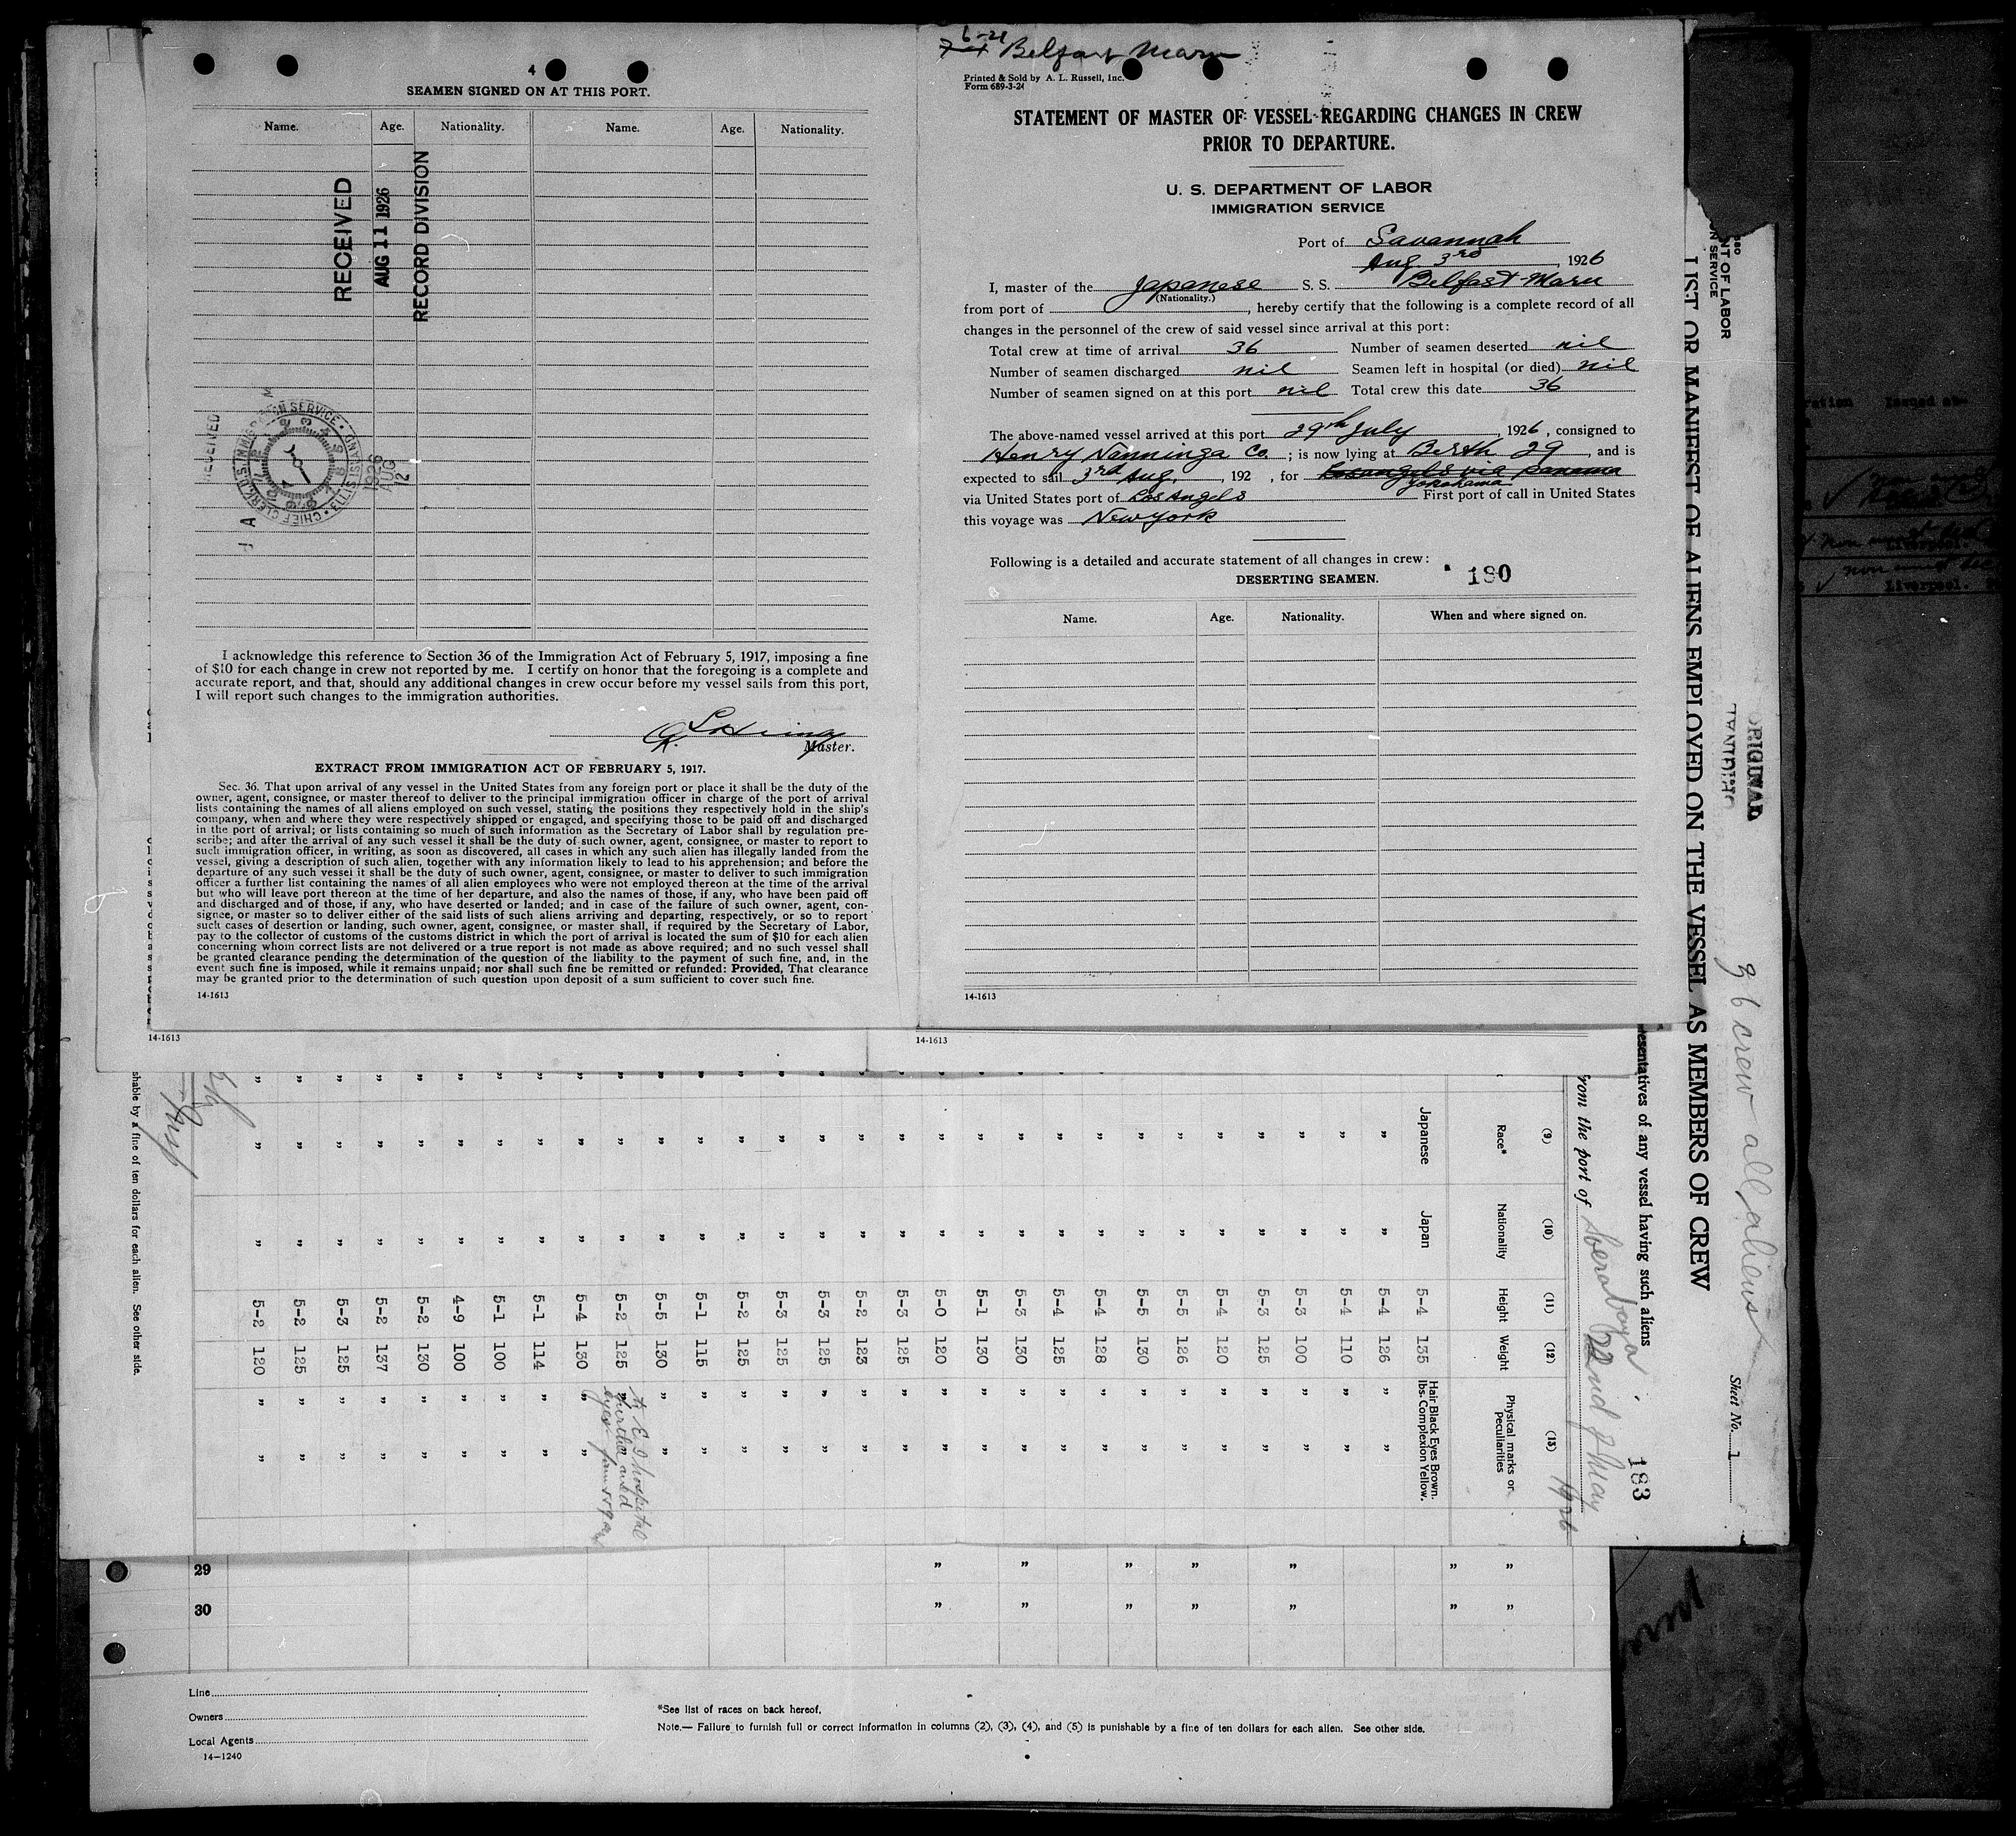 4
SEAMEN SIGNED ON AT THIS PORT.
Name. Age. Nationality. Name. Age. Nationality.
RECEIVED
AUG 11 1926
RECORD DIVISION
RECEIVED
CHIEF CLERK U.S. IMMIGRATION SERVICE · ELLIS ISLAND
1926
AUG
12
I acknowledge this reference to Section 36 of the Immigration Act of February 5, 1917, imposing a fine
of $10 for each change in crew not reported by me. I certify on honor that the foregoing is a complete and
accurate report, and that, should any additional changes in crew occur before my vessel sails from this port,
I will report such changes to the immigration authorities.
Master.
EXTRACT FROM IMMIGRATION ACT OF FEBRUARY 5, 1917.
Sec. 36. That upon arrival of any vessel in the United States from any foreign port or place it shall be the duty of the
owner, agent, consignee, or master thereof to deliver to the principal immigration officer in charge of the port of arrival
lists containing the names of all aliens employed on such vessel, stating the positions they respectively hold in the ship's
company, when and where they were respectively shipped or engaged, and specifying those to be paid off and discharged
in the port of arrival; or lists containing so much of such information as the Secretary of Labor shall by regulation pre-
scribe; and after the arrival of any such vessel it shall be the duty of such owner, agent, consignee, or master to report to
such immigration officer, in writing, as soon as discovered, all cases in which any such alien has illegally landed from the
vessel, giving a description of such alien, together with any information likely to lead to his apprehension; and before the
departure of any such vessel it shall be the duty of such owner, agent, consignee, or master to deliver to such immigration
officer a further list containing the names of all alien employees who were not employed thereon at the time of the arrival
but who will leave port thereon at the time of her departure, and also the names of those, if any, who have been paid off
and discharged and of those, if any, who have deserted or landed; and in case of the failure of such owner, agent, con-
signee, or master so to deliver either of the said lists of such aliens arriving and departing, respectively, or so to report
such cases of desertion or landing, such owner, agent, consignee, or master shall, if required by the Secretary of Labor,
pay to the collector of customs of the customs district in which the port of arrival is located the sum of $10 for each alien
concerning whom correct lists are not delivered or a true report is not made as above required; and no such vessel shall
be granted clearance pending the determination of the question of the liability to the payment of such fine, and, in the
event such fine is imposed, while it remains unpaid; nor shall such fine be remitted or refunded: Provided, That clearance
may be granted prior to the determination of such question upon deposit of a sum sufficient to cover such fine.
14-1613
14-1613
6-21 Belfast Maru
Printed & Sold by A. L. Russell, Inc.
Form 689-3-24
STATEMENT OF MASTER OF VESSEL REGARDING CHANGES IN CREW
PRIOR TO DEPARTURE.
U. S. DEPARTMENT OF LABOR
IMMIGRATION SERVICE
Port of Savannah
Aug 3rd, 1926
I, master of the Japanese S. S. Belfast Maru
(Nationality.)
from port of , hereby certify that the following is a complete record of all
changes in the personnel of the crew of said vessel since arrival at this port:
Total crew at time of arrival 36 Number of seamen deserted nil
Number of seamen discharged nil Seamen left in hospital (or died) nil
Number of seamen signed on at this port nil Total crew this date 36
The above-named vessel arrived at this port 29th July, 1926, consigned to
Henry Nanninga Co. ; is now lying at Berth 29, and is
expected to sail 3rd Aug., 192 , for Losangels via panama
Yokohama
via United States port of Los Angels First port of call in United States
this voyage was New York
Following is a detailed and accurate statement of all changes in crew:
DESERTING SEAMEN. 180
Name. Age. Nationality. When and where signed on.
14-1613
14-1613
NT OF LABOR
N SERVICE
LIST OR MANIFEST OF ALIENS EMPLOYED ON THE VESSEL AS MEMBERS OF CREW
ORIGINAL
36 crew all aliens
Sheet No. 1
esentatives of any vessel having such aliens
183
rom the port of Soerabaya 22nd May 1926
(9) (10) (11) (12) (13)
Race* Nationality Height Weight Physical marks or peculiarities
Japanese Japan 5-4 135 Hair Black Eyes Brown.
lbs. Complexion Yellow.
" " 5-4 126 " "
" " 5-4 110 " "
" " 5-3 100 " "
" " 5-3 125 " "
" " 5-4 120 " "
" " 5-5 126 " "
" " 5-5 130 " "
" " 5-4 128 " "
" " 5-4 125 " "
" " 5-3 130 " "
" " 5-1 130 " "
" " 5-0 120 " "
" " 5-3 125 " "
" " 5-2 123 " "
" " 5-3 125 " "
" " 5-3 125 " "
" " 5-2 125 " "
" " 5-1 115 " "
" " 5-5 130 " "
to E I hospital
" " 5-2 125 " "
" " 5-4 130 " "
" " 5-1 114 " "
" " 5-1 100 " "
" " 4-9 100 " "
" " 5-2 130 " "
" " 5-2 137 " "
" " 5-3 125 " "
" " 5-2 125 " "
" " 5-2 120 " "
shable by a fine of ten dollars for each alien. See other side.
29 " " " " " " "
30 " " " " " " "
Line
Owners
Local Agents
14-1240
*See list of races on back hereof.
Note.— Failure to furnish full or correct information in columns (2), (3), (4), and (5) is punishable by a fine of ten dollars for each alien. See other side.
ration Issued at
Liverpool.